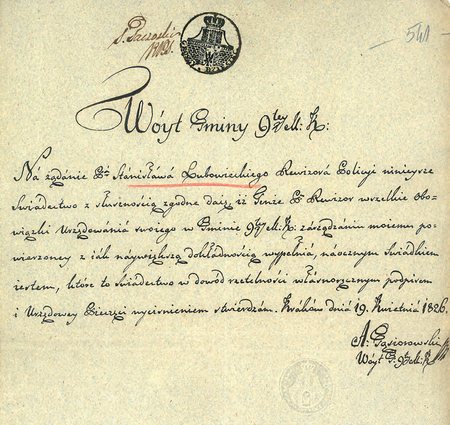 541
Wóyt Gminy 9tey M: K:
Na żądanie Pa Stanisława Lubowieckiego Rewizora Policyi ninieysze
Swiadectwo z słusznością zgodne daię, iż Tenże P. Rewizor wszelkie obo-
wiązki Urzędowania swoiego w Gminie 9tey M: K: zarządzaniu moiemu po-
wierzoney z iak náywiększą dokładnością wypełnia, naocznym świadkiem
iestem, ktore to świadectwo w dowód rzetelności własnoręcznym podpisem
i Urzędowey Pieczęci wyciśnieniem stwierdzám. Kraków dnia 19. Kwietnia 1826.
A: Gąsiorowski
Wóyt G: 9 M: K